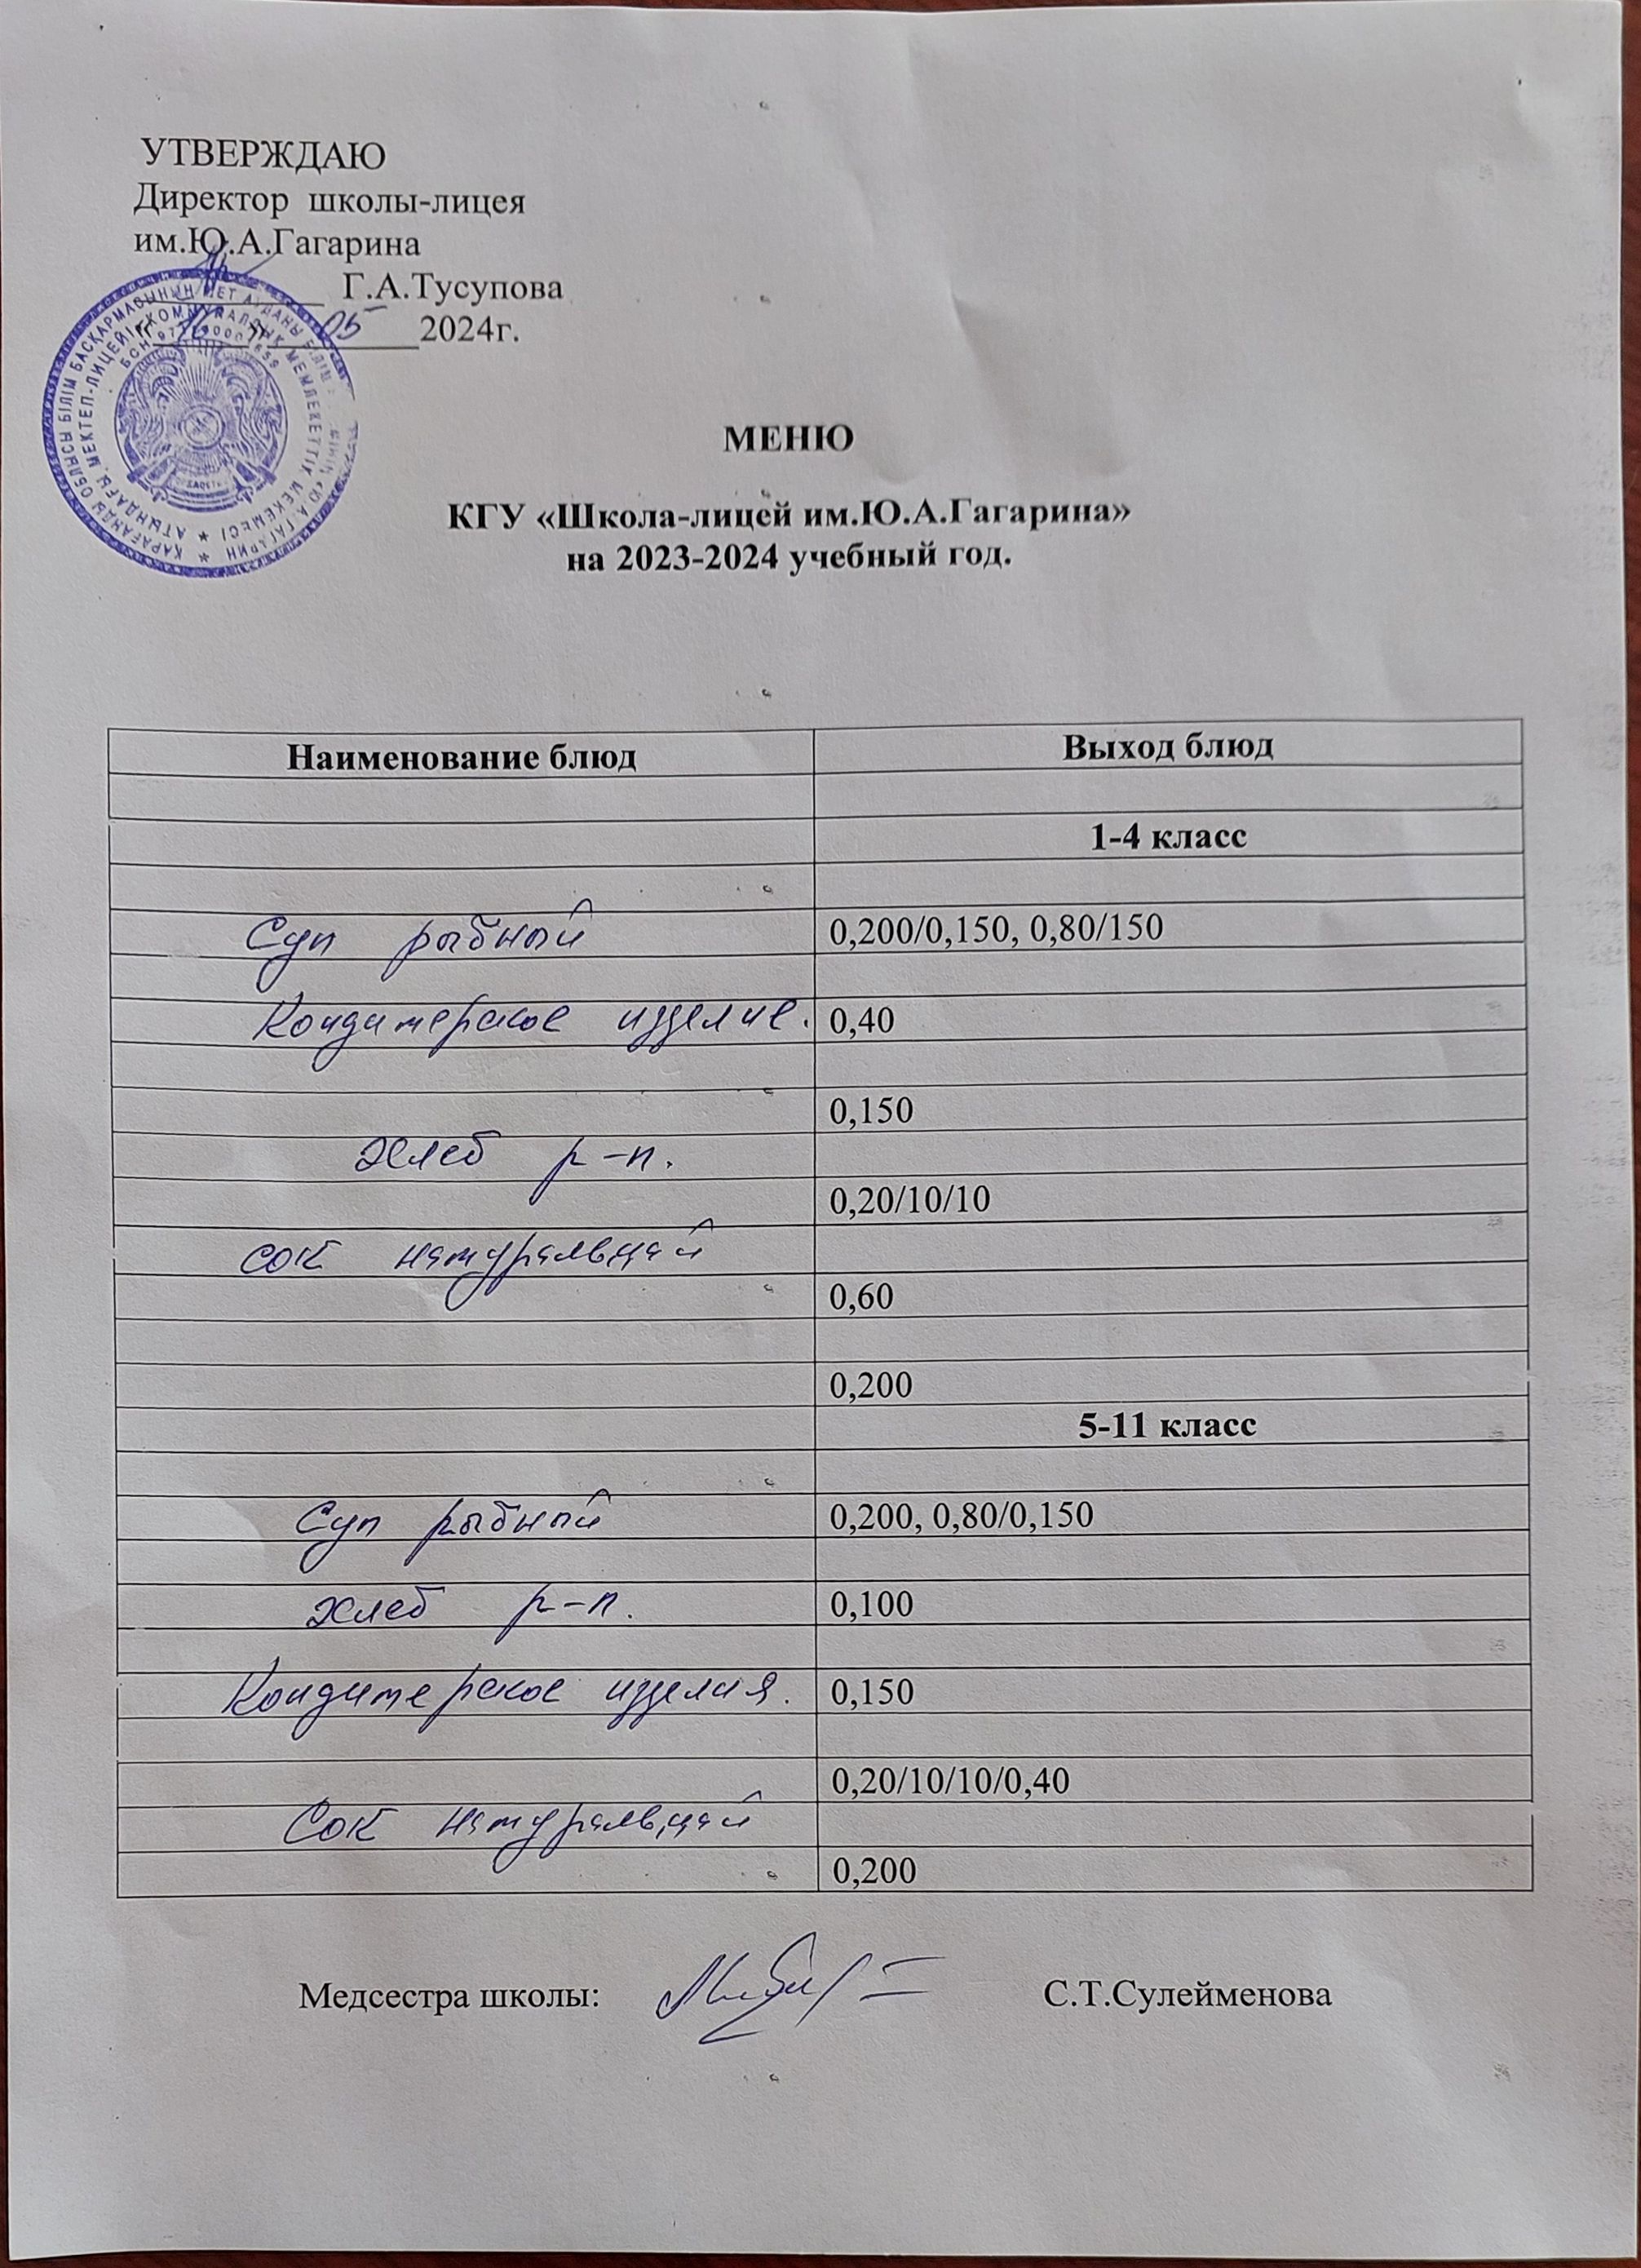 УТВЕРЖДАЮ
Директор школы-лицея
им.Ю.А.Гагарина
Г.А.Тусупова
«16» 05 2024г.
МЕНЮ
КГУ «Школа-лицей им.Ю.А.Гагарина»
на 2023-2024 учебный год.
Наименование блюд Выход блюд
1-4 класс
Суп рыбный 0,200/0,150, 0,80/150
Кондитерское изделие. 0,40
0,150
Хлеб р-п.
0,20/10/10
сок натуральный
0,60
0,200
5-11 класс
Суп рыбный 0,200, 0,80/0,150
Хлеб р-п. 0,100
Кондитерское изделия. 0,150
0,20/10/10/0,40
Сок натуральный
0,200
Медсестра школы: С.Т.Сулейменова